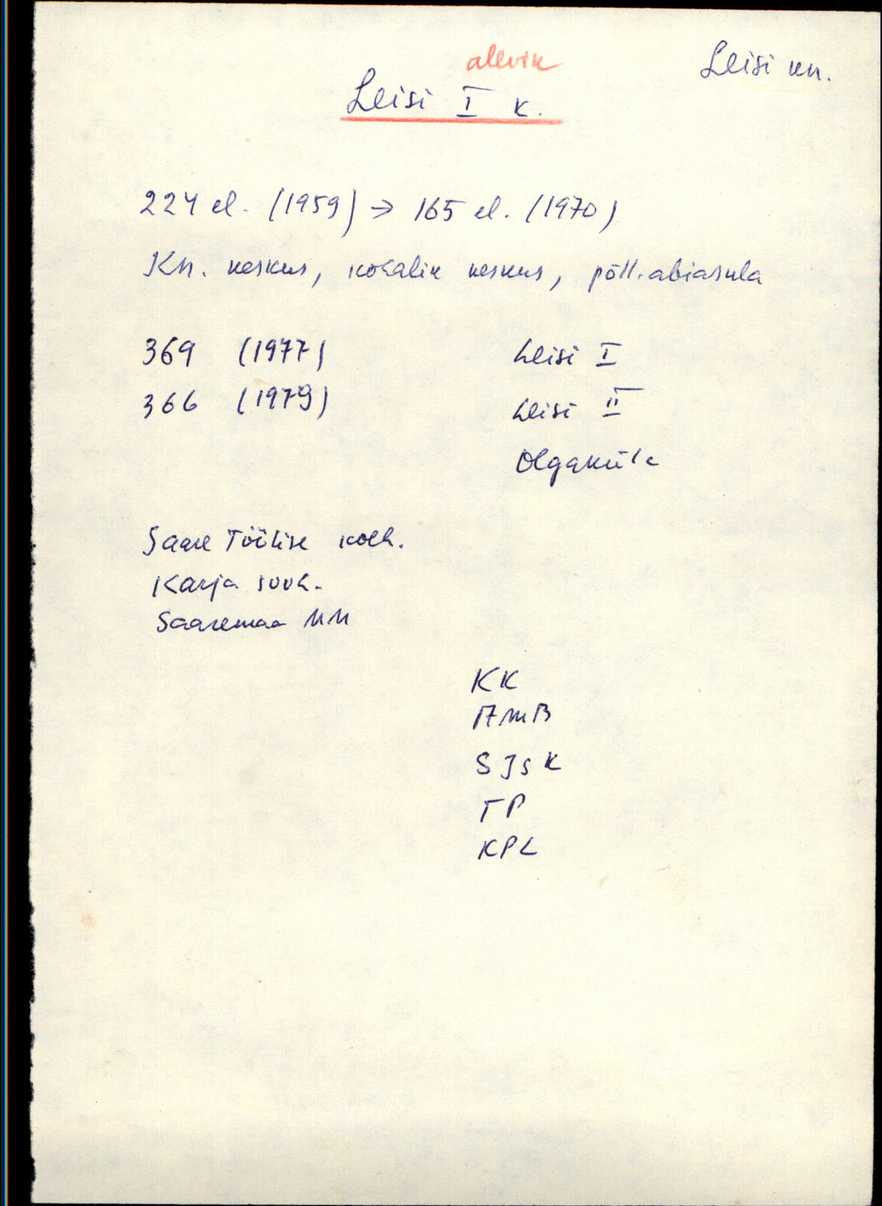 allevik
Leisi kn.
Leisi I k.
224 el. (1959) → 165 el. (1970)
Kn. keskus, kohalik keskus, põll. abiasula
369 (1977) Leisi I
366 (1979) Leisi II
Olgaküla
Saare Töölise kolh.
Karja sovh.
Saaremaa MM
KK
AMB
SJSK
TP
KPL